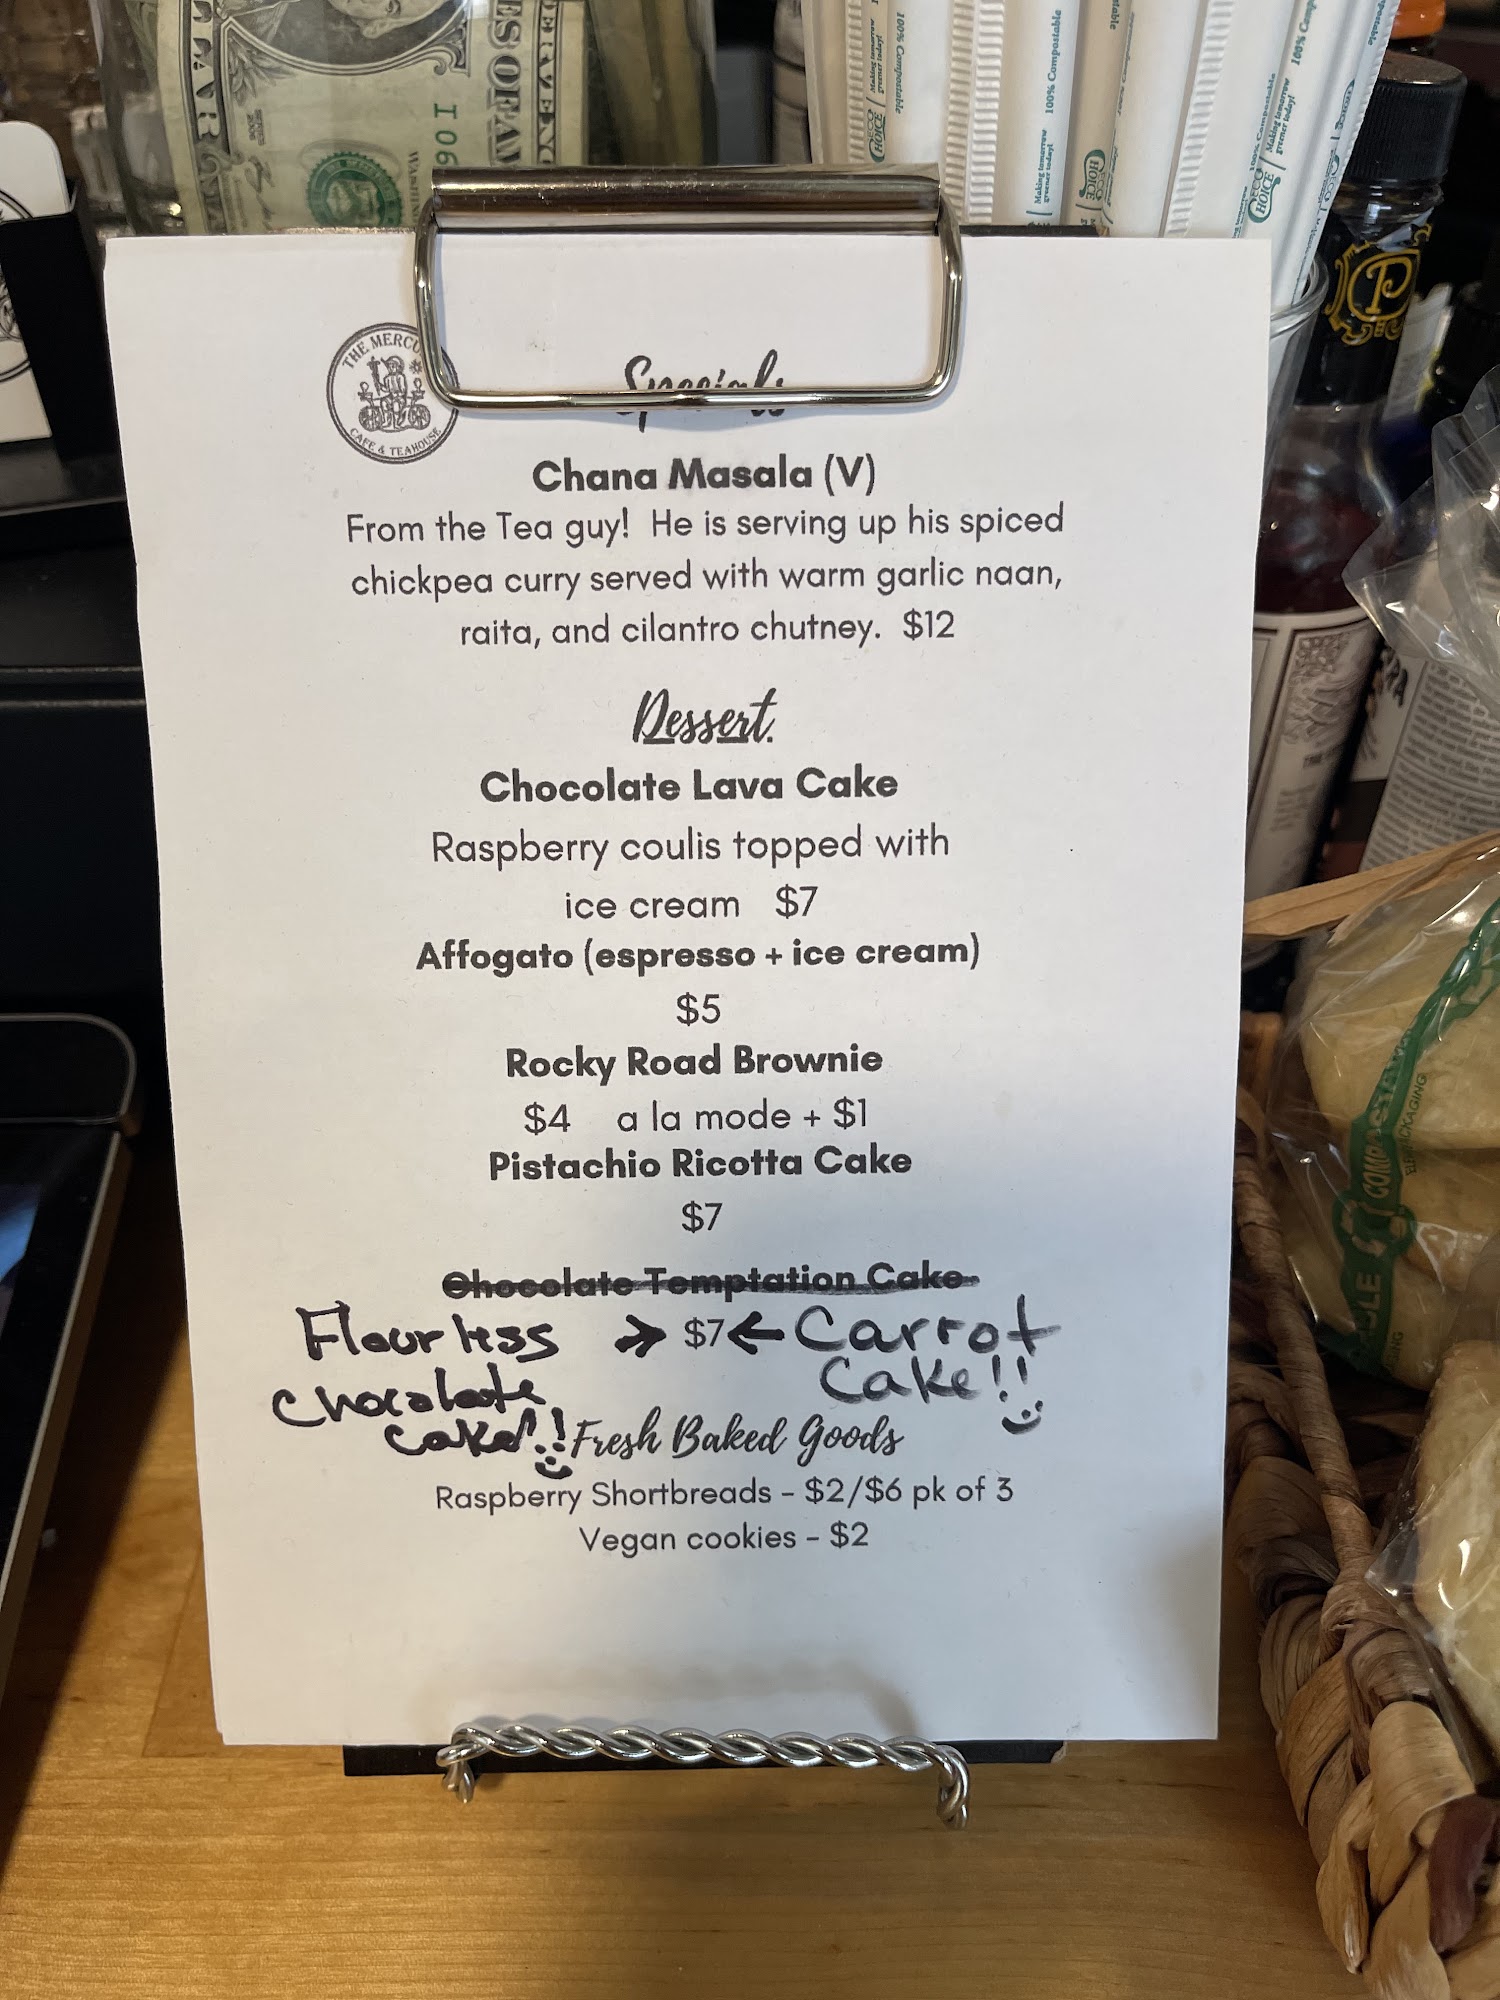 100% Compostable
Making tomorrow
greener today!
ECO
CHOICE
THE MERCU
CAFE & TEAHOUSE
P
Specials
Chana Masala (V)
From the Tea guy! He is serving up his spiced
chickpea curry served with warm garlic naan,
raita, and cilantro chutney. $12
Dessert.
Chocolate Lava Cake
Raspberry coulis topped with
ice cream $7
Affogato (espresso + ice cream)
$5
Rocky Road Brownie
$4 a la mode + $1
Pistachio Ricotta Cake
$7
Chocolate Temptation Cake
Flourless → $7 ← Carrot
Chocolate Cake!!
Cake!!
Fresh Baked Goods
Raspberry Shortbreads - $2/$6 pk of 3
Vegan cookies - $2